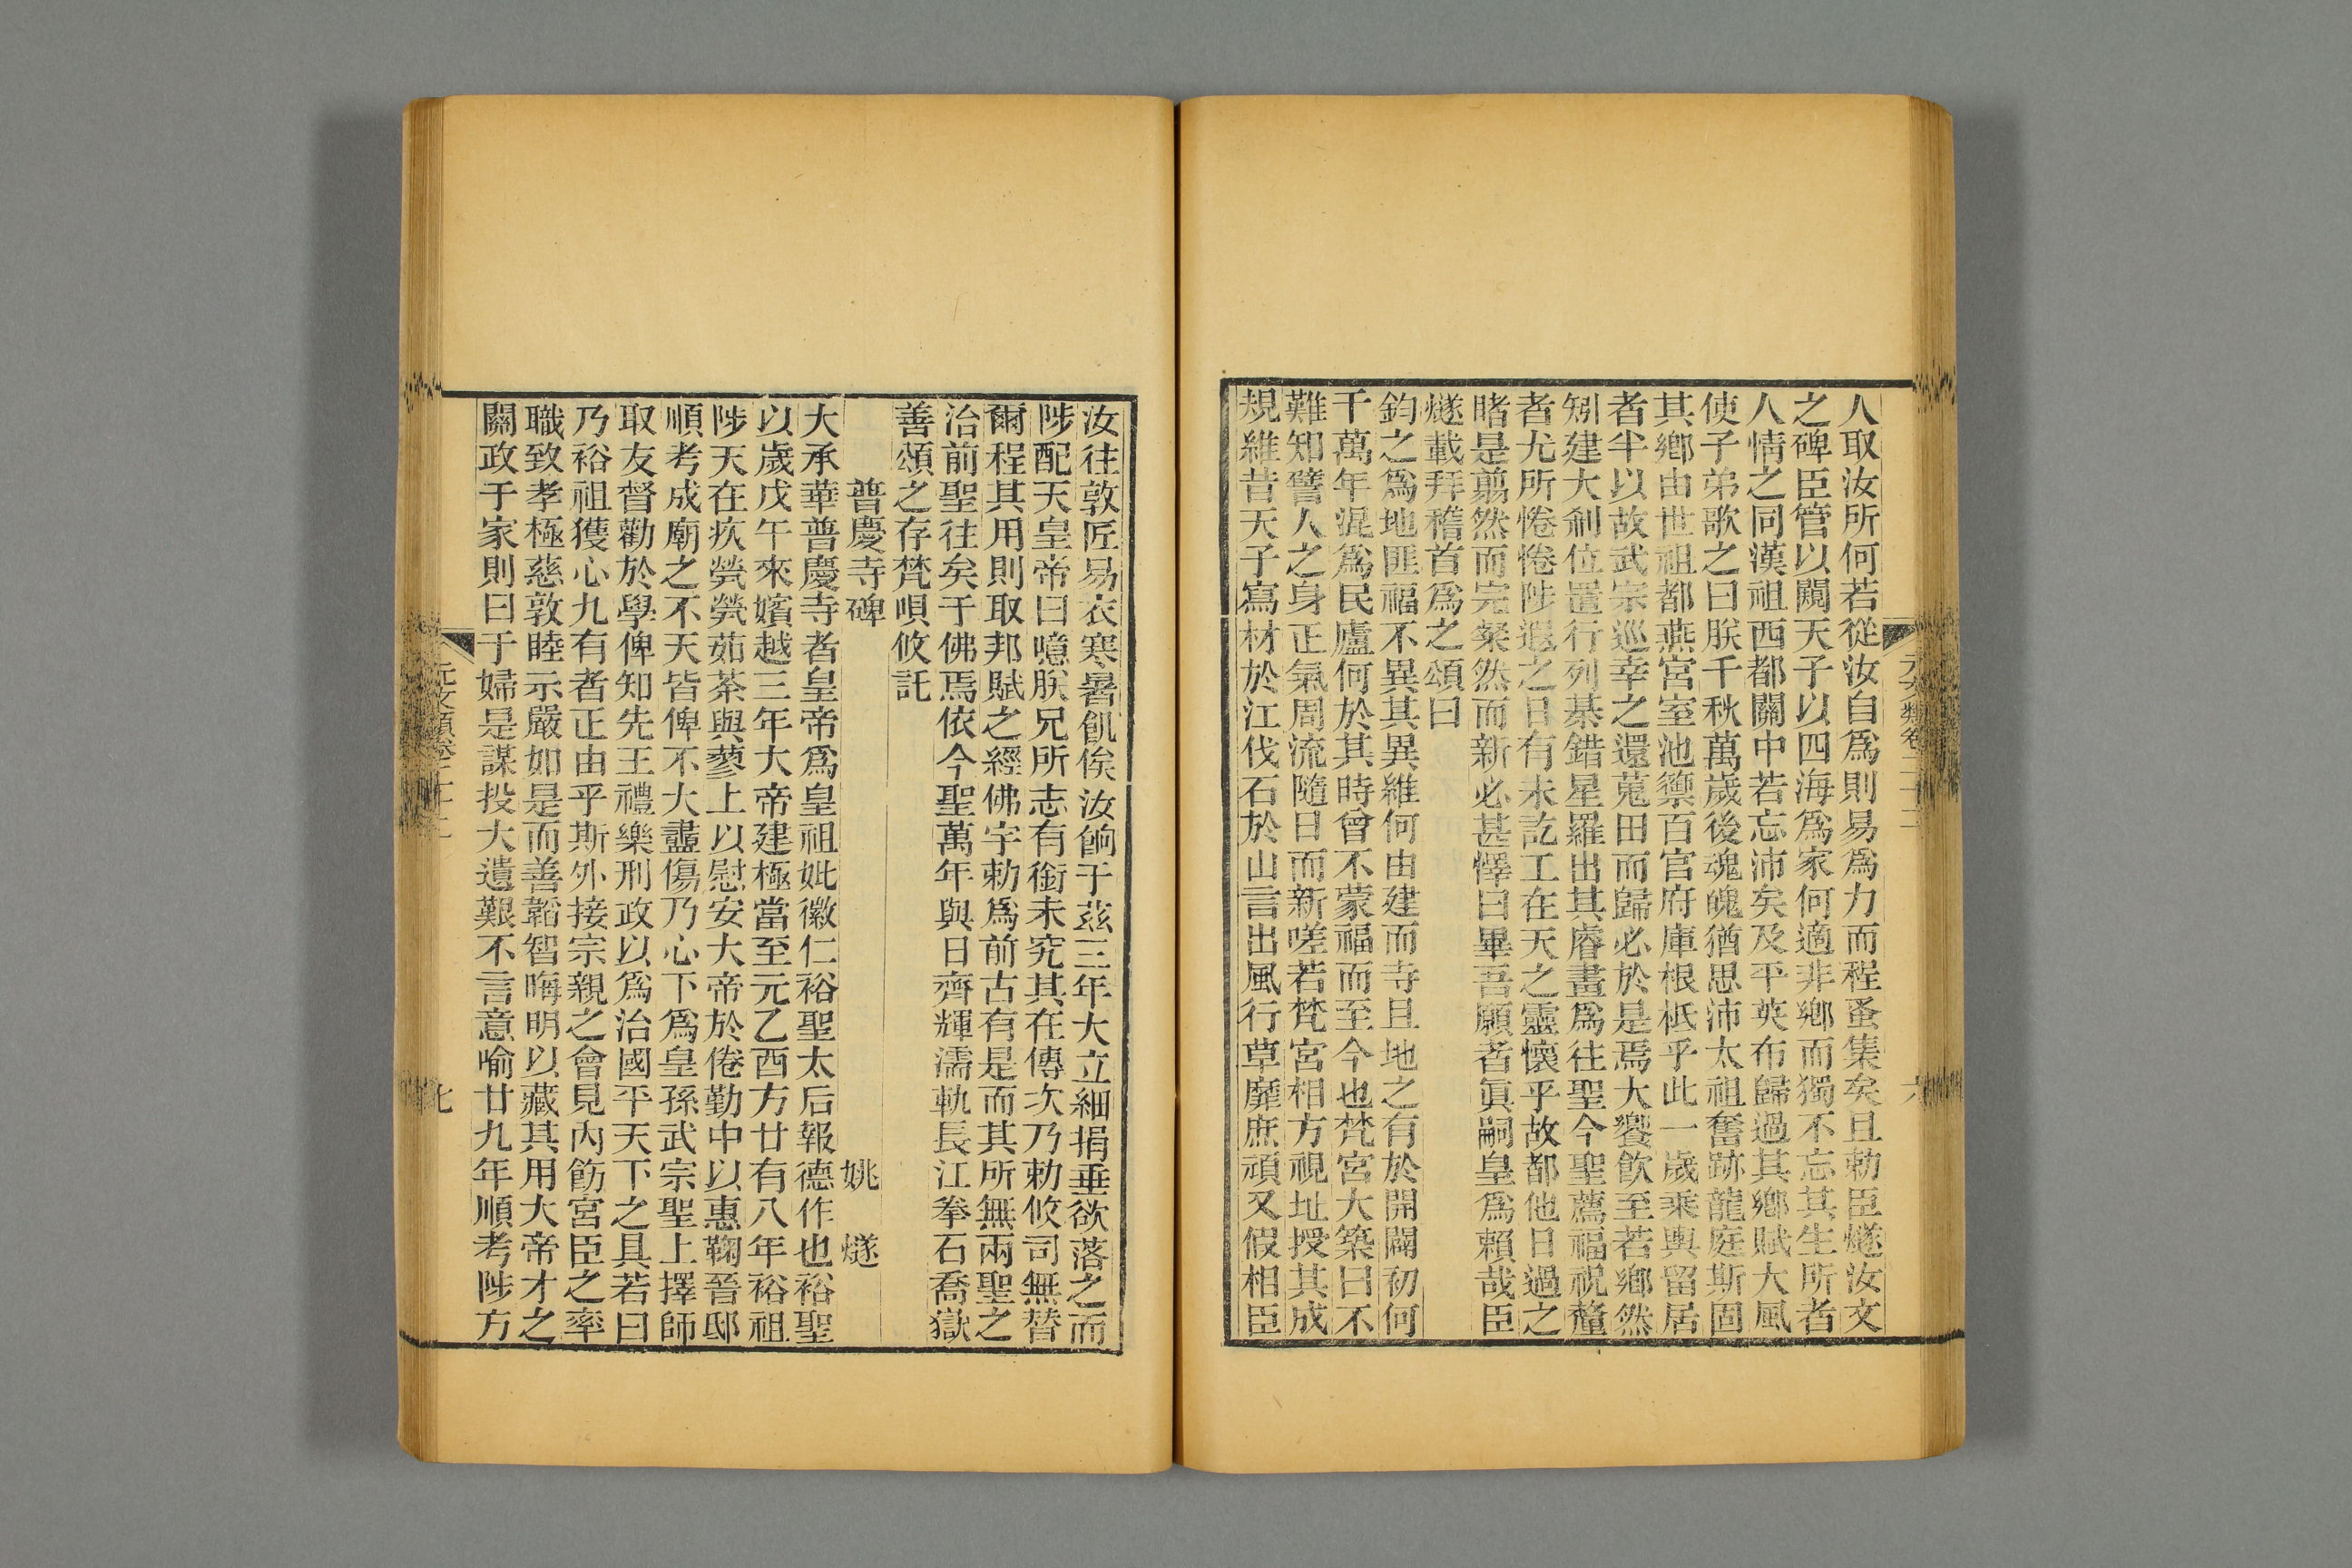 人取汝所何若從汝自爲則易爲力而程蚤集矣且勅臣燧汝文
之碑臣管以闚天子以四海爲家何適非鄉而獨不忘其生所者
人情之同漢祖西都關中若忘沛矣及平英布歸過其鄉賦大風
使子弟歌之曰朕千秋萬歲後魂魄猶思沛太祖奮跡龍庭斯固
其鄉由世祖都燕宮室池籞百官府庫根柢乎此一歲乘輿留居
者半以故武宗巡幸之還蒐田而歸必於是焉大饗飮至若鄉然
矧建大剎位置行列棊錯星羅出其睿畫爲往聖今聖薦福祝釐
者尤所惓惓陟遐之日有未訖工在天之靈懷乎故都他日過之
睹是翦然而完粲然而新必甚懌曰畢吾願者眞嗣皇爲賴哉臣
燧載拜稽首爲之頌曰
鈞之爲地匪福不異其異維何由建而寺且地之有於開闢初何
千萬年混爲民廬何於其時曾不蒙福而至今也梵宮大築曰不
難知譬人之身正氣周流隨日而新嗟若梵宮相方視址授其成
規維昔天子寫材於江伐石於山言出風行草靡庶頑又假相臣
元文類卷二十二
六
汝往敦匠易衣寒暑飢俟汝餉于茲三年大立細捐垂欲落之而
陟配天皇帝曰噫朕兄所志有銜未究其在傳次乃勅攸司無替
爾程其用則取邦賦之經佛宇勅爲前古有是而其所無兩聖之
治前聖往矣于佛焉依今聖萬年與日齊輝濡軌長江拳石喬嶽
善頌之存梵唄攸託
普慶寺碑 姚燧
大承華普慶寺者皇帝爲皇祖妣徽仁裕聖太后報德作也裕聖
以歲戊午來嬪越三年大帝建極當至元乙酉方廿有八年裕祖
陟天在疚煢煢茹荼與蓼上以慰安大帝於倦勤中以惠鞠晉邸
順考成廟之不天皆俾不大衋傷乃心下爲皇孫武宗聖上擇師
取友督勸於學俾知先王禮樂刑政以爲治國平天下之具若曰
乃裕祖獲心九有者正由乎斯外接宗親之會見內飭宮臣之率
職致孝極慈敦睦示嚴如是而善韜智晦明以藏其用大帝才之
關政于家則曰于婦是謀投大遺艱不言意喻廿九年順考陟方
元文類卷二十二
七